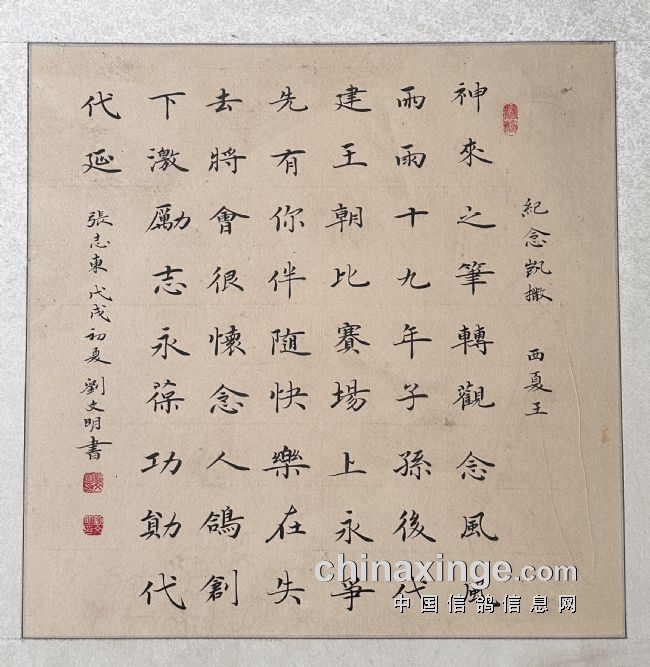 紀念凱撒 西夏王
神來之筆轉觀念風風
雨雨十九年子孫後代
建王朝比賽場上永爭
先有你伴隨快樂在失
去將會很懷念人鴿創
下激勵志永葆功勛代
代延
張志東戊戌初夏劉文明書
chinaxinge.com
中国信鸽信息网